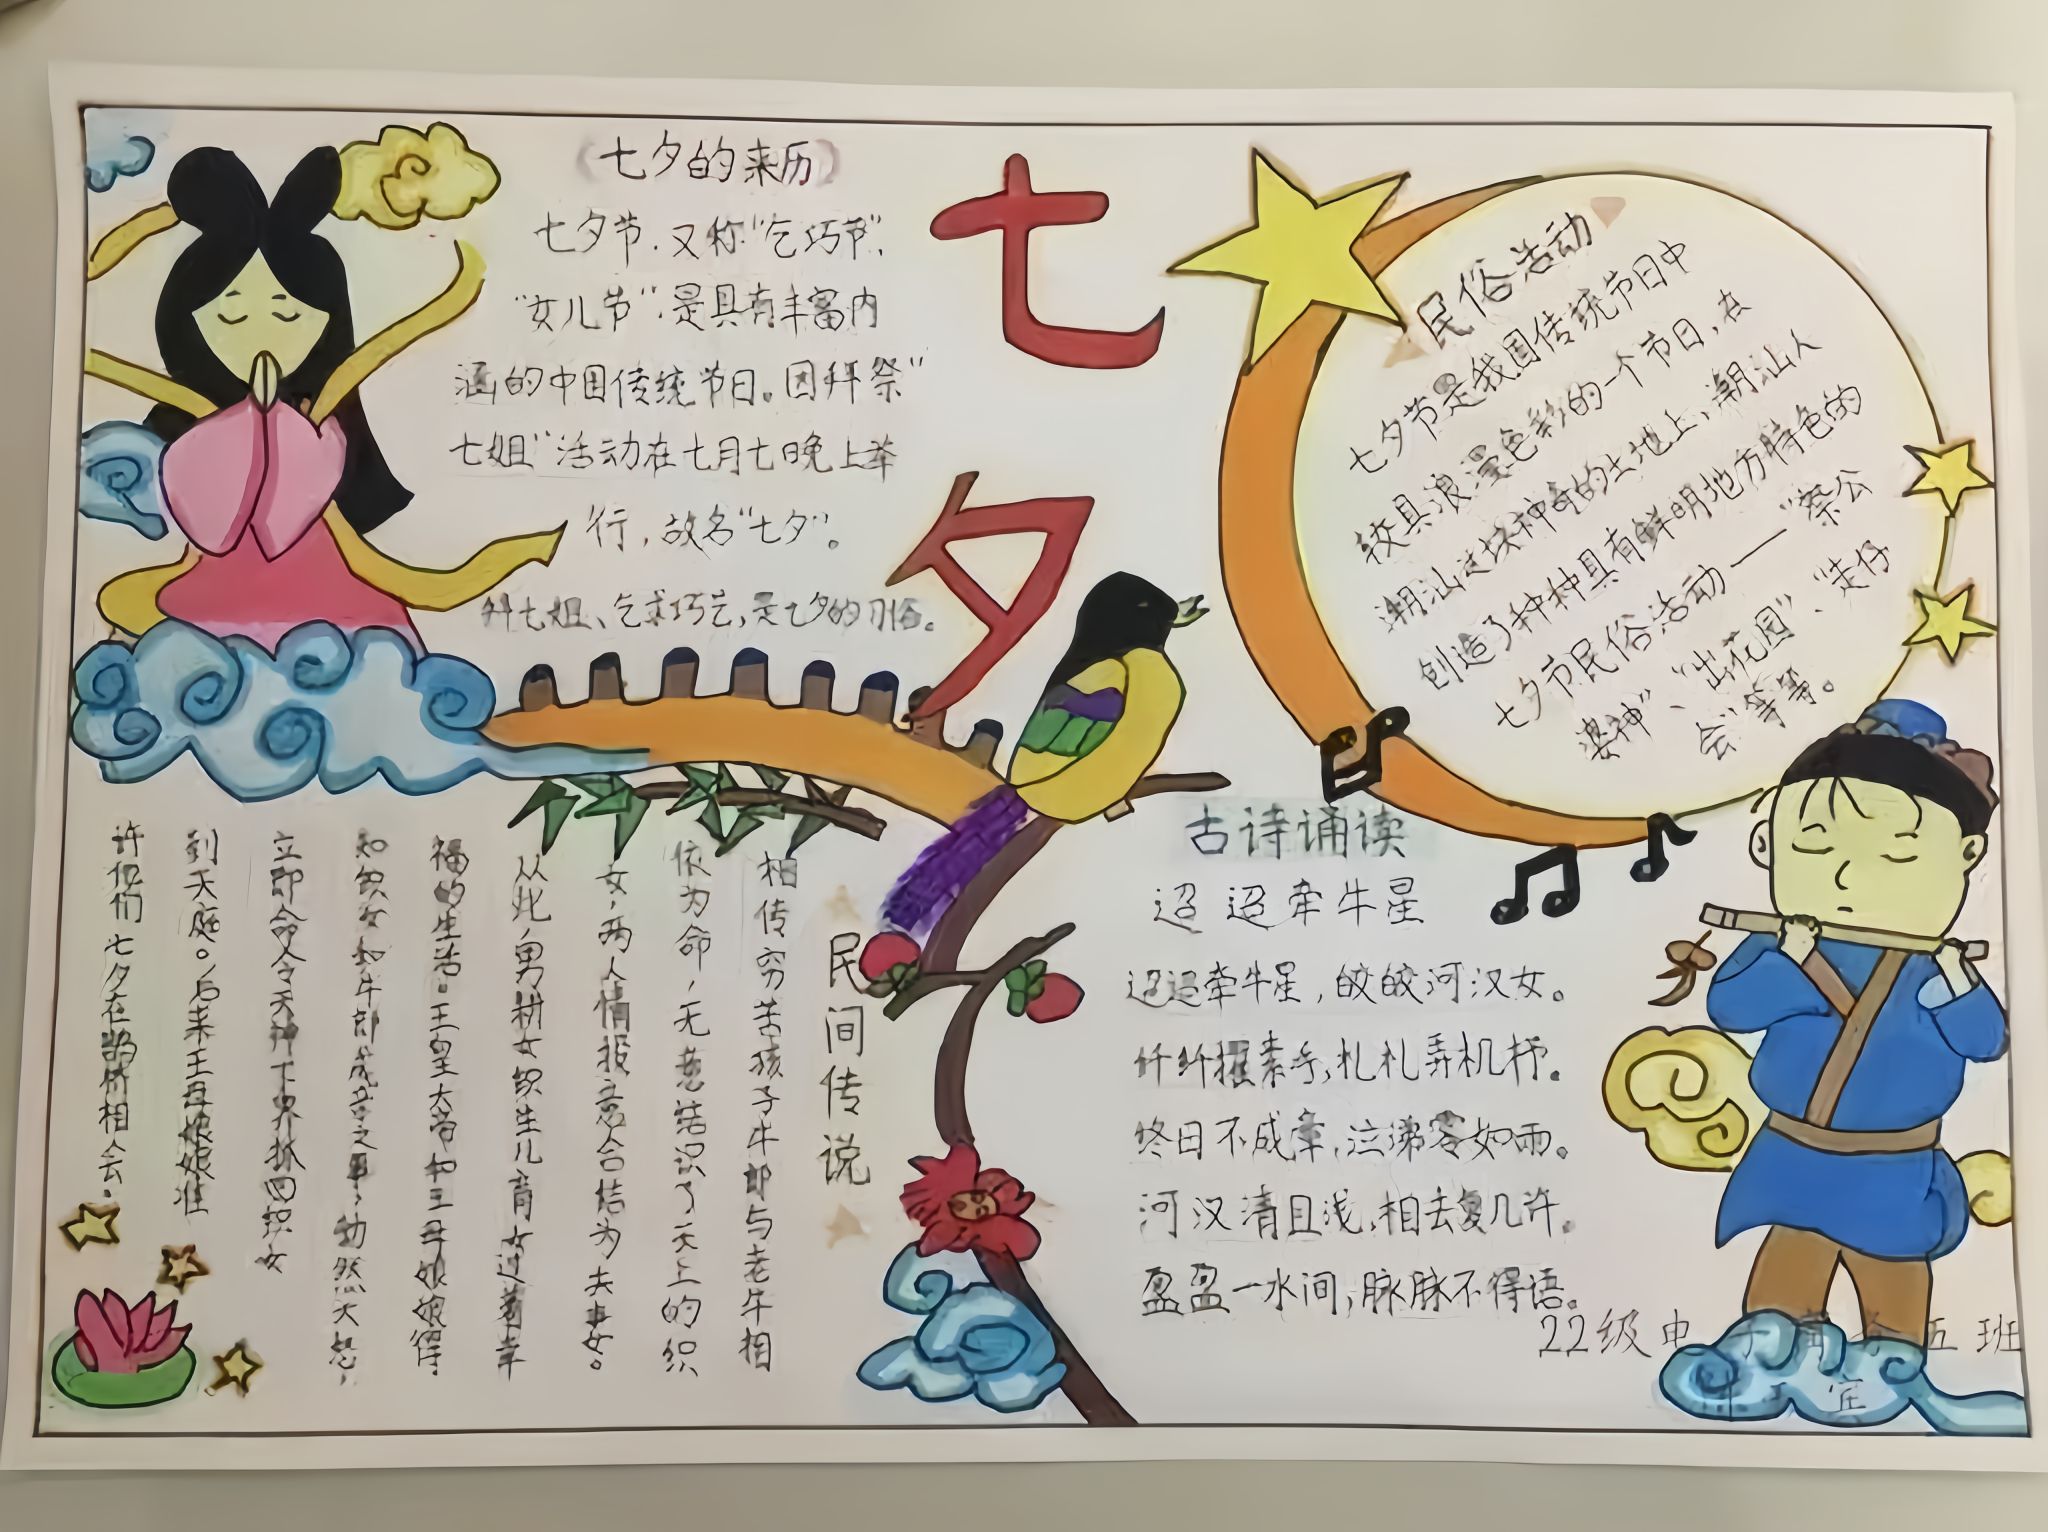 《七夕的来历》
七夕节，又称"乞巧节"，
"女儿节"，是具有丰富内
涵的中国传统节日。因拜祭"
七姐"活动在七月七晚上举
行，故名"七夕"。
拜七姐、乞求巧艺，是七夕的习俗。
七
夕
民俗活动
七夕节是我国传统节日中
较具浪漫色彩的一个节日，在
潮汕这块神奇的土地上，潮汕人
创造了种种具有鲜明地方特色的
七夕节民俗活动——"祭公
婆神"、"出花园"、"走仔
会"等等。
民间传说
相传穷苦孩子牛郎与老牛相
依为命，无意结识了天上的织
女，两人情投意合结为夫妻。
从此，男耕女织生儿育女过着幸
福的生活。王皇大帝和王母娘娘得
知织女和牛郎成亲之事，勃然大怒，
立即命令天神下界抓回织女
到天庭。后来王母娘娘准
许他们七夕在鹊桥相会。
古诗诵读
迢迢牵牛星
迢迢牵牛星，皎皎河汉女。
纤纤擢素手，札札弄机杼。
终日不成章，泣涕零如雨。
河汉清且浅，相去复几许。
盈盈一水间，脉脉不得语。
22级电子商务五班